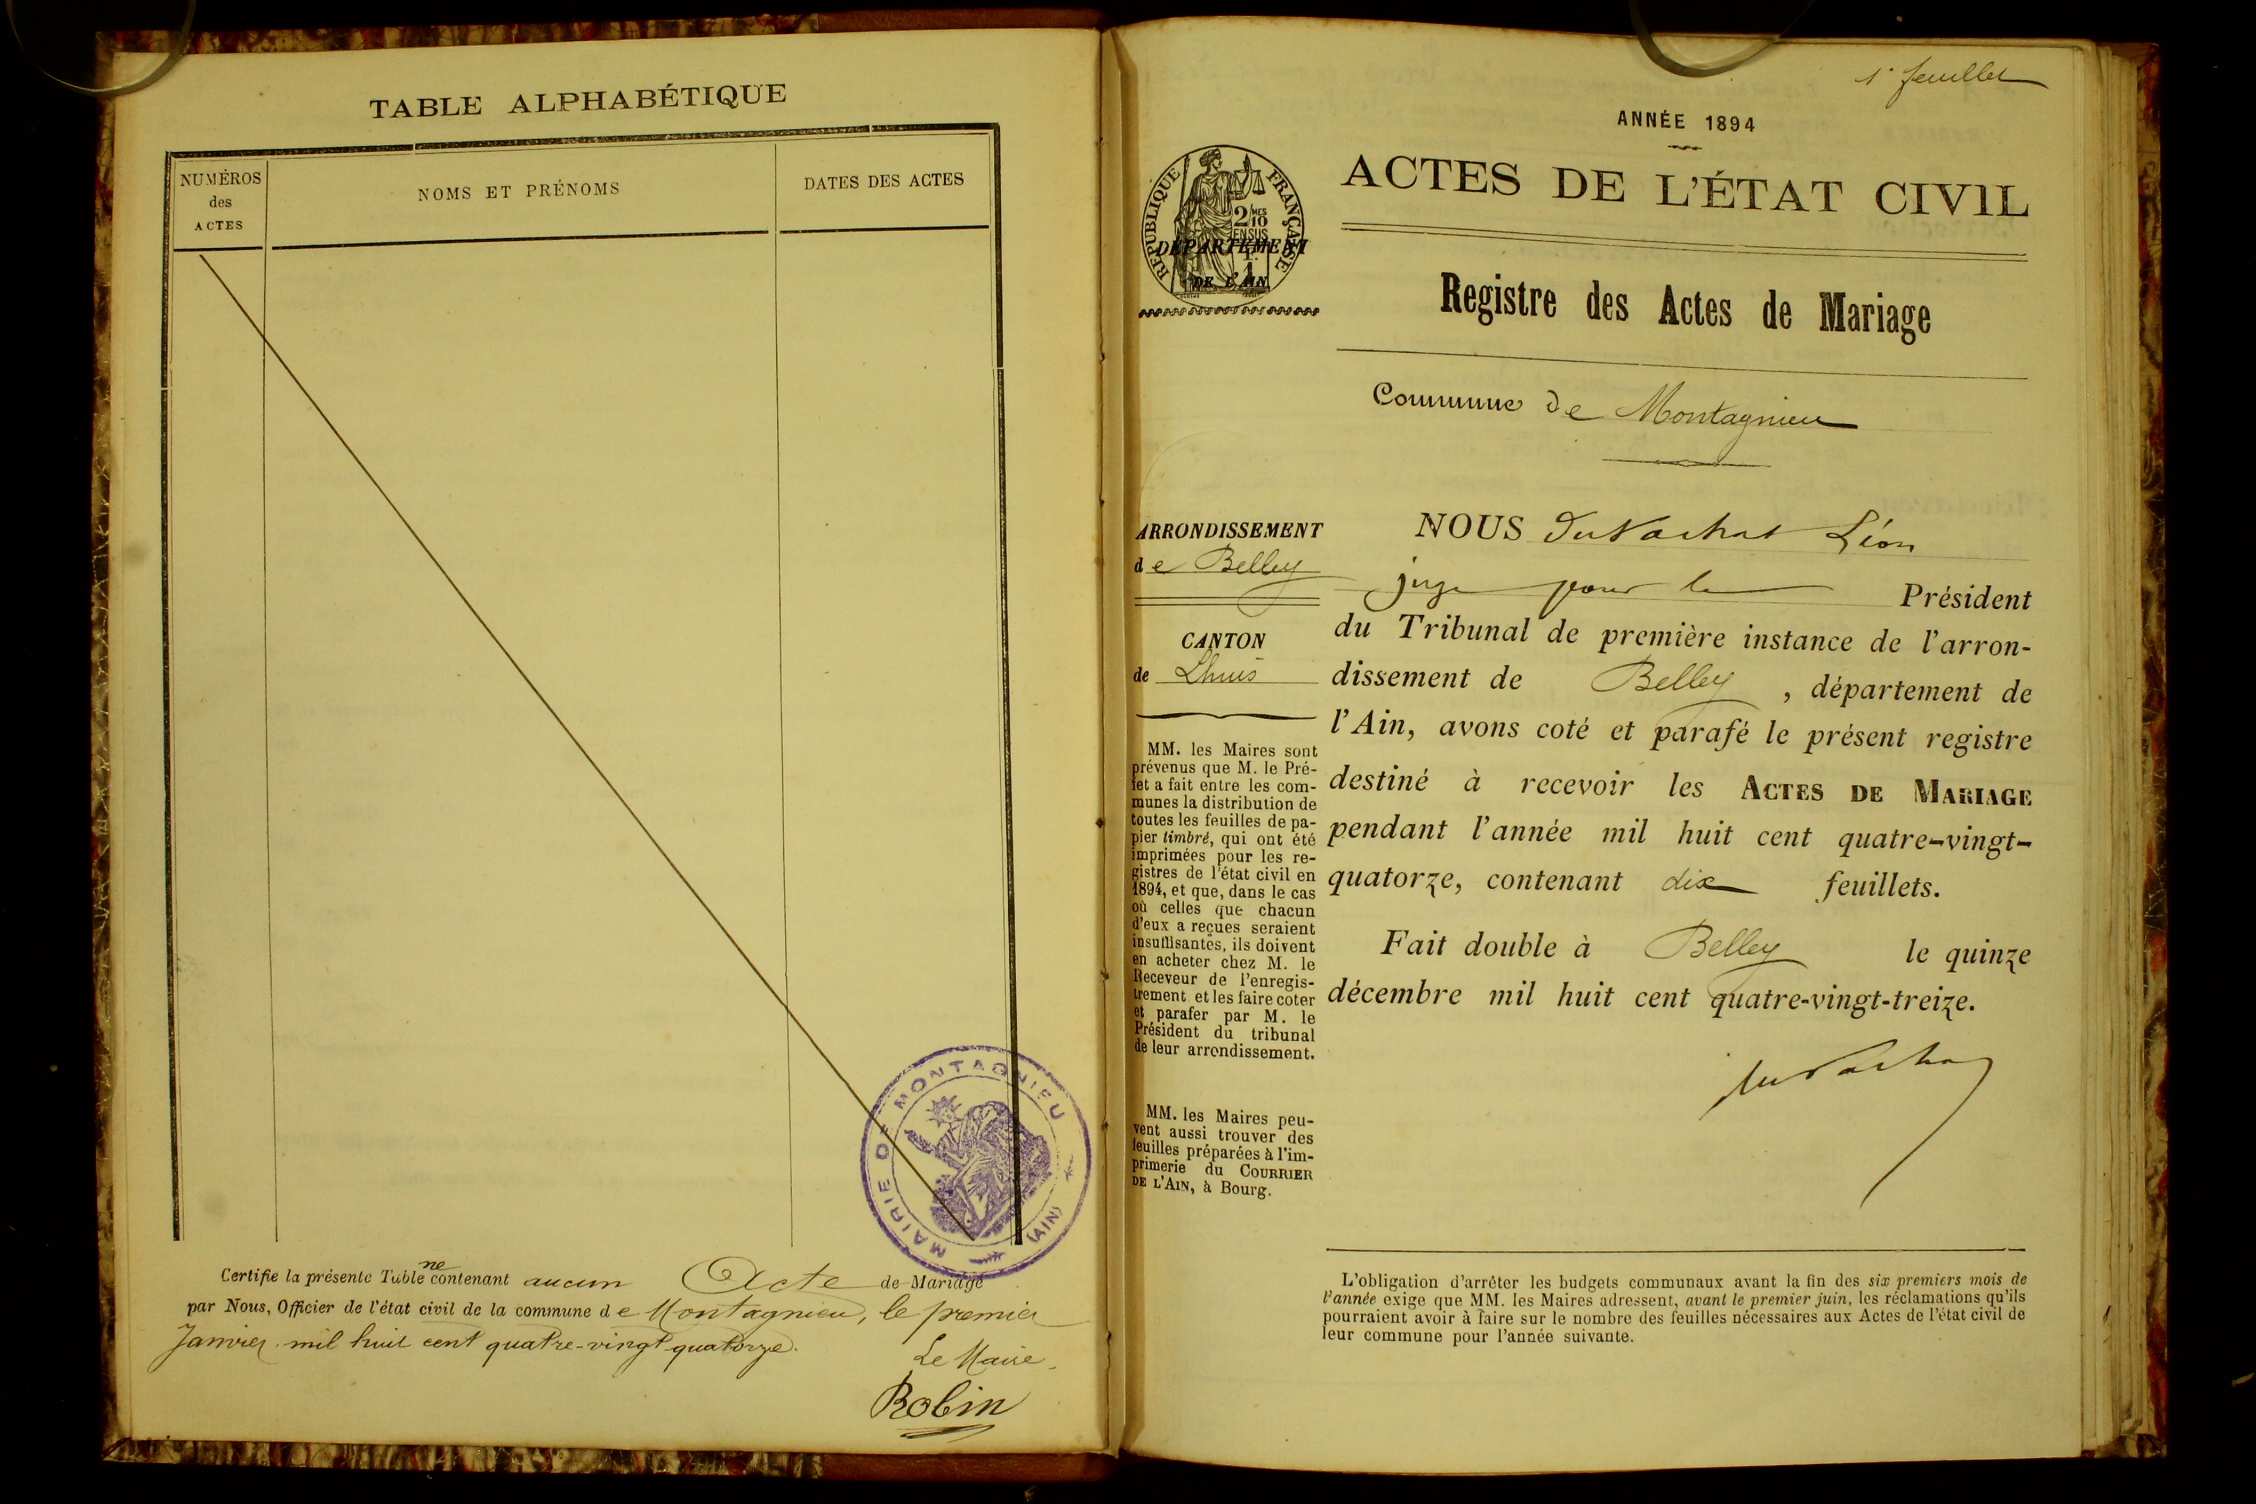 TABLE ALPHABÉTIQUE
NUMÉROS
des
ACTES
NOMS ET PRÉNOMS
DATES DES ACTES
MAIRIE DE MONTAGNIEU
(AIN)
Certifie la présente Table ne contenant aucun Acte de Mariage
par Nous, Officier de l'état civil de la commune de Montagnieu, le premier
Janvier mil huit cent quatre-vingt quatorze.
Le Maire
Robin
1er feuillet
ANNÉE 1894
RÉPUBLIQUE FRANÇAISE
2/10MES
EN SUS
DÉPARTEMENT
DE L'AIN
ACTES DE L'ÉTAT CIVIL
Registre des Actes de Mariage
Commune de Montagnieu
ARRONDISSEMENT
de Belley
CANTON
de Lhuis
MM. les Maires sont
prévenus que M. le Pré-
fet a fait entre les com-
munes la distribution de
toutes les feuilles de pa-
pier timbré, qui ont été
imprimées pour les re-
gistres de l'état civil en
1894, et que, dans le cas
où celles que chacun
d'eux a reçues seraient
insuffisantes, ils doivent
en acheter chez M. le
Receveur de l'enregis-
trement et les faire coter
et parafer par M. le
Président du tribunal
de leur arrondissement.
MM. les Maires peu-
vent aussi trouver des
feuilles préparées à l'im-
primerie du COURRIER
DE L'AIN, à Bourg.
NOUS DuVachat Léon
juge pour le Président
du Tribunal de première instance de l'arron-
dissement de Belley, département de
l'Ain, avons coté et parafé le présent registre
destiné à recevoir les ACTES DE MARIAGE
pendant l'année mil huit cent quatre-vingt-
quatorze, contenant dix feuillets.
Fait double à Belley le quinze
décembre mil huit cent quatre-vingt-treize.
DuVachat
L'obligation d'arrêter les budgets communaux avant la fin des six premiers mois de
l'année exige que MM. les Maires adressent, avant le premier juin, les réclamations qu'ils
pourraient avoir à faire sur le nombre des feuilles nécessaires aux Actes de l'état civil de
leur commune pour l'année suivante.